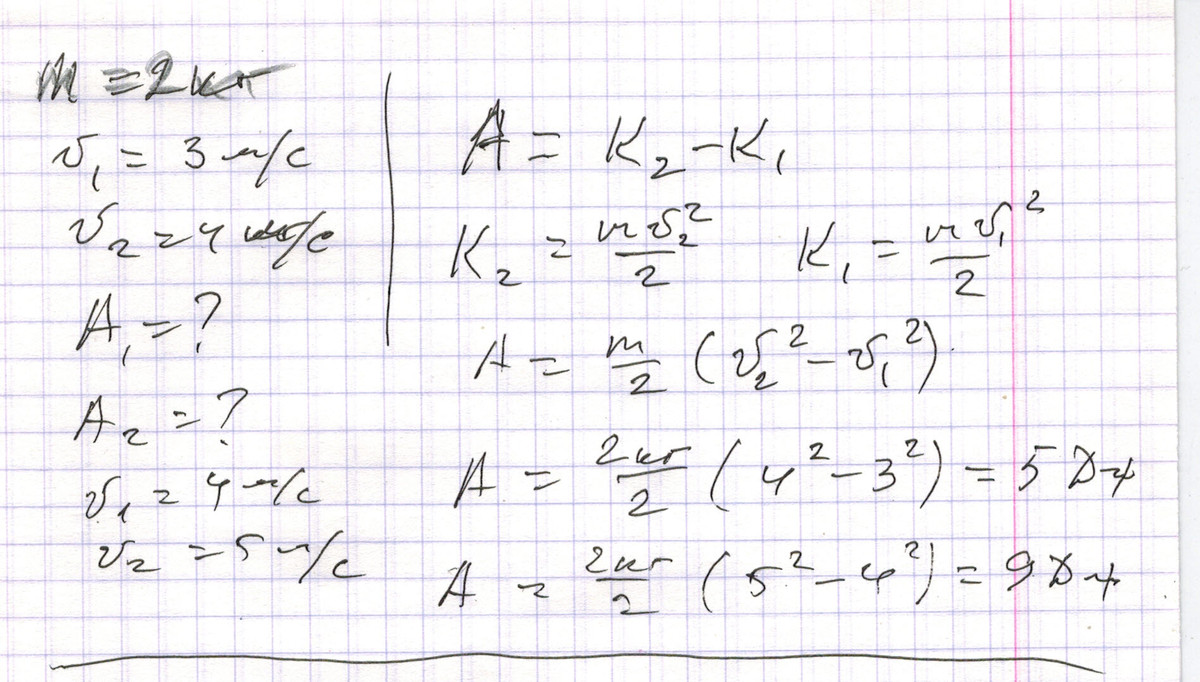 m = 2 кг
v₁ = 3 м/с
v₂ = 4 м/с
A₁ = ?
A₂ = ?
v₁ = 4 м/с
v₂ = 5 м/с
A = K₂ - K₁
K₂ = mv₂²/2 K₁ = mv₁²/2
A = m/2 (v₂² - v₁²)
A = 2кг/2 (4² - 3²) = 5 Дж
A = 2кг/2 (5² - 4²) = 9 Дж